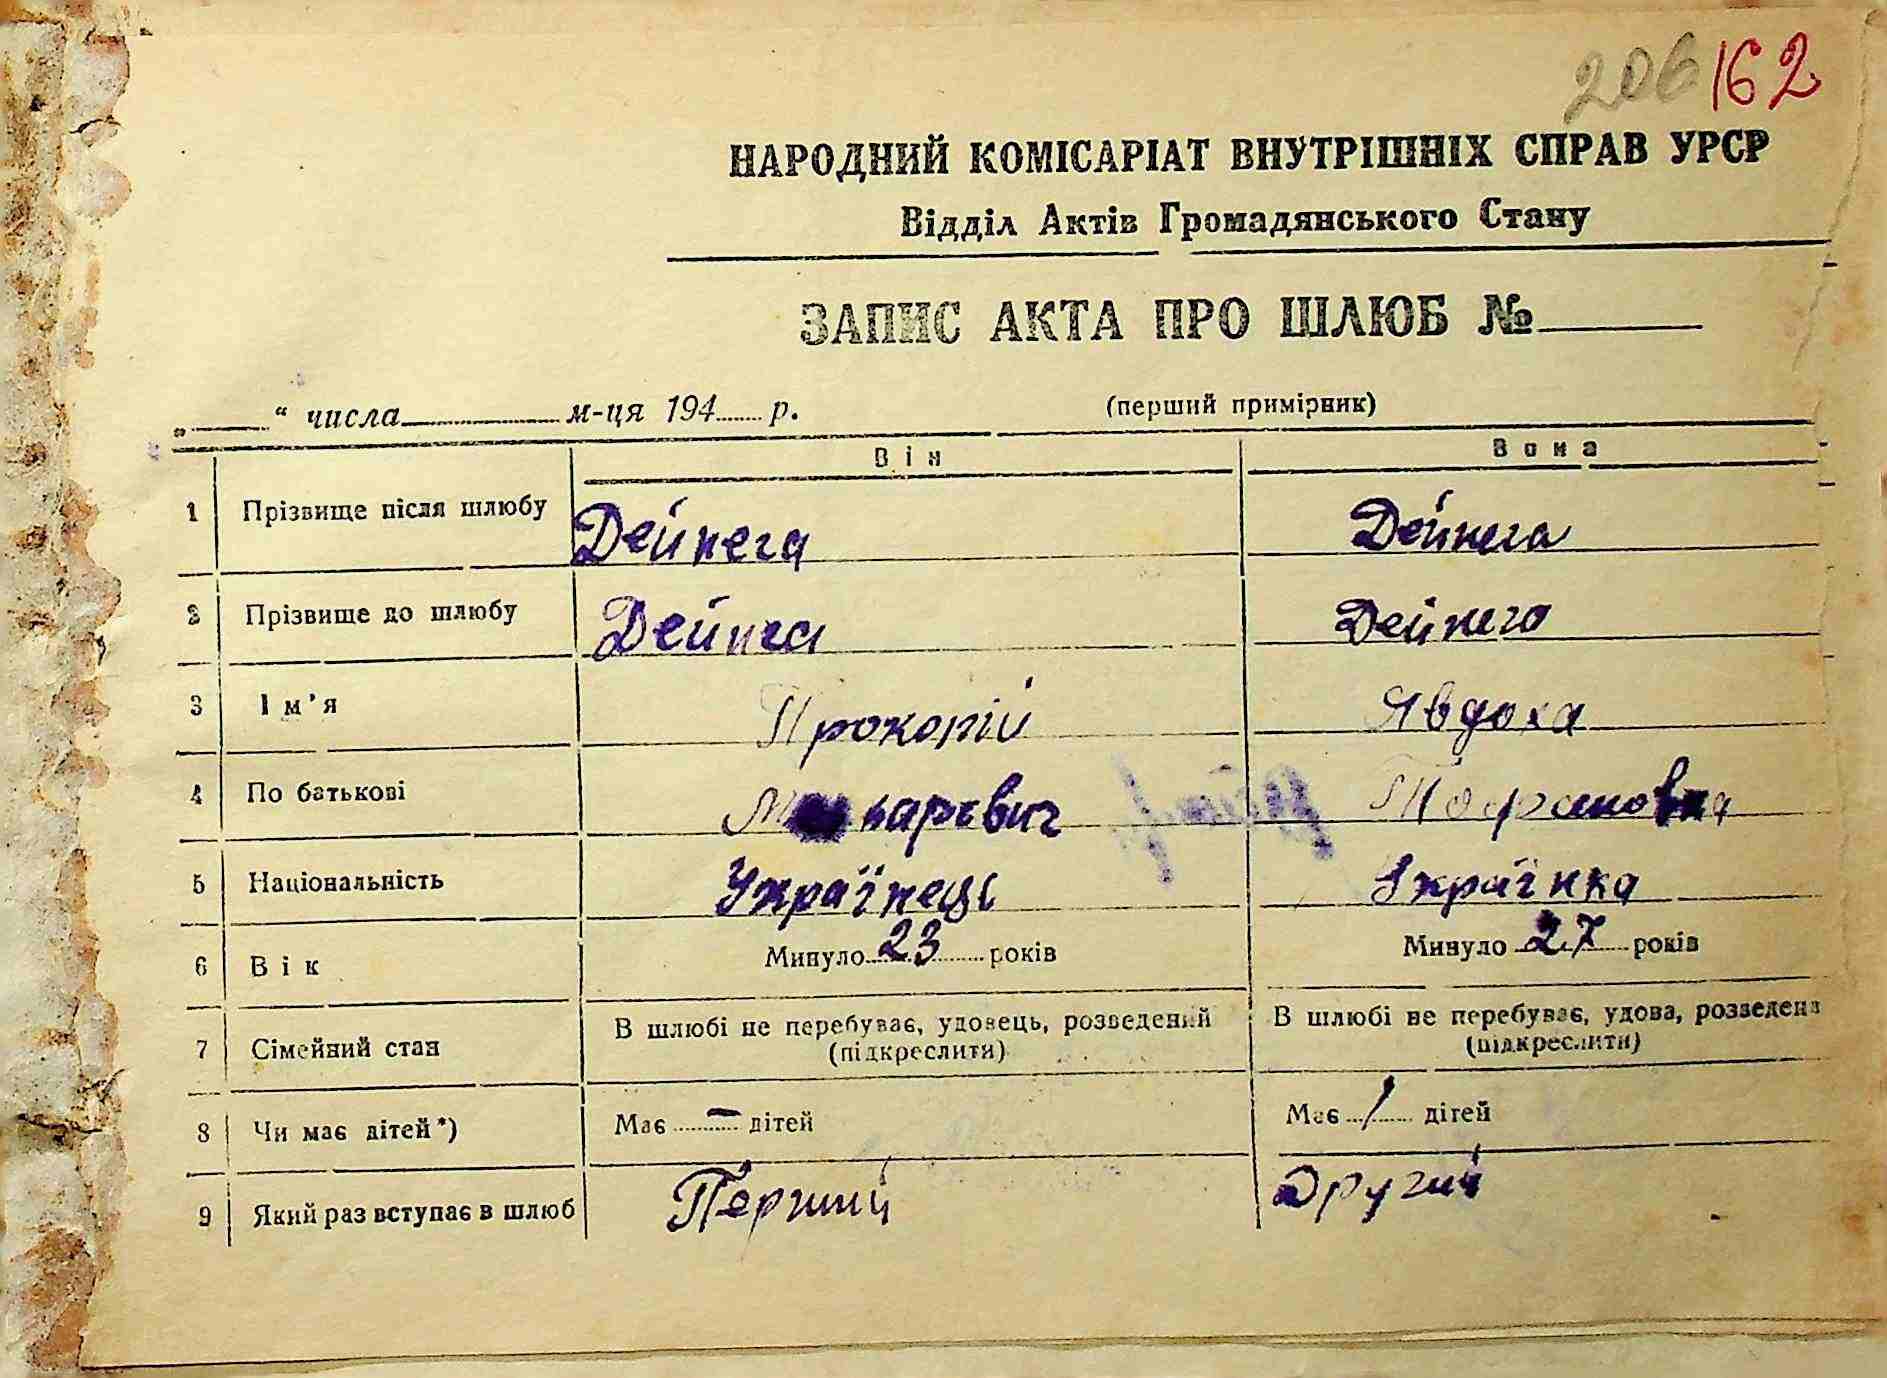 206 162
НАРОДНИЙ КОМІСАРІАТ ВНУТРІШНІХ СПРАВ УРСР
Відділ Актів Громадянського Стану
ЗАПИС АКТА ПРО ШЛЮБ №
„ “ числа м-ця 194 р. (перший примірник)
Він Вона
1 Прізвище після шлюбу Дейнега Дейнега
2 Прізвище до шлюбу Дейнга Дейнега
3 Ім'я Прокопій Явдоха
4 По батькові
5 Національність Українець Українка
6 Вік Минуло 23 років Минуло 27 років
7 Сімейний стан В шлюбі не перебуває, удовець, розведений В шлюбі не перебуває, удова, розведена
(підкреслити) (підкреслити)
8 Чи має дітей*) Має — дітей Має 1 дітей
9 Який раз вступає в шлюб Перший Другий